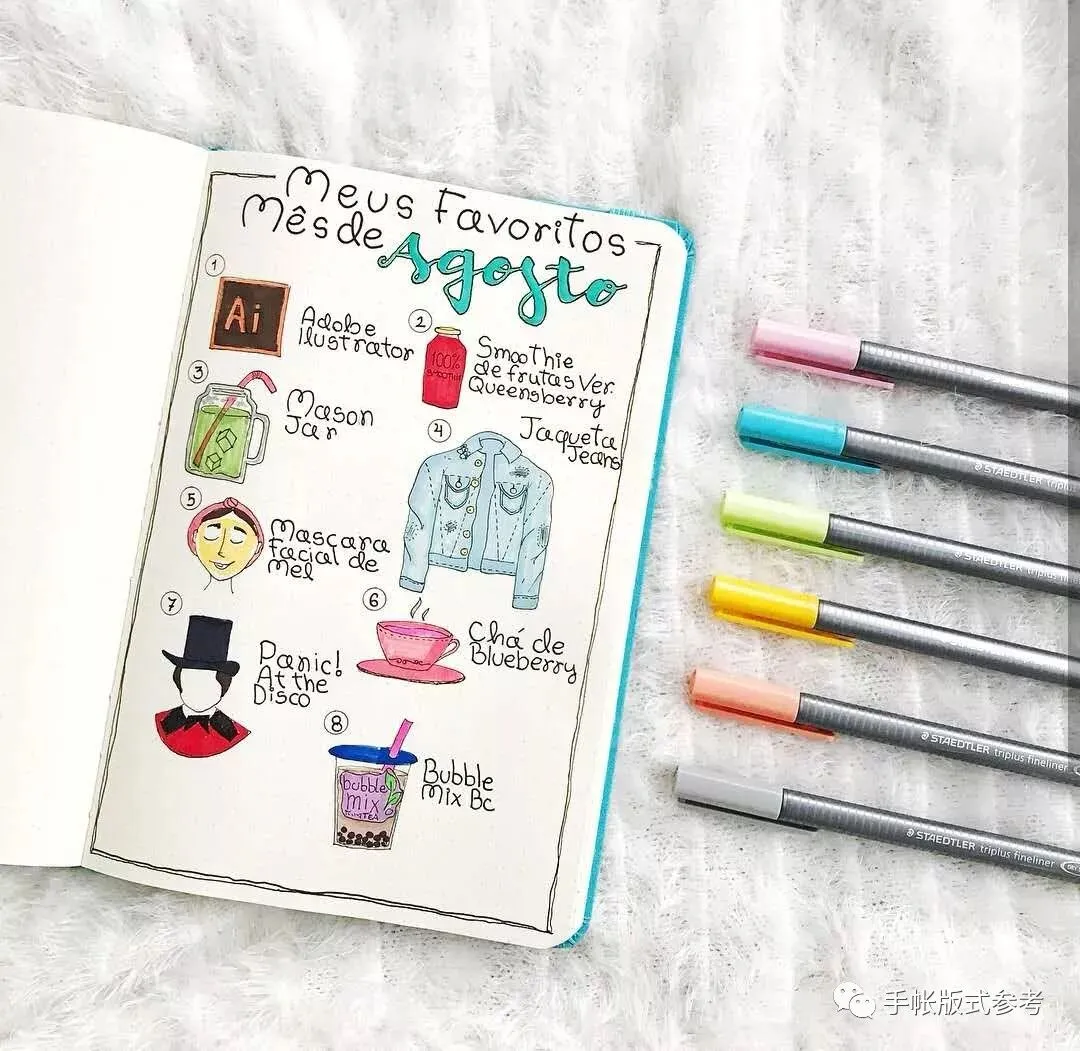 Meus Favoritos
Mês de Agosto
1
Ai
Adobe
Ilustrator
2
100%
Smoothie
Smoothie
de frutas ver.
Queensberry
3
Mason
Jar
4
Jaqueta
Jeans
5
Mascara
facial de
Mel
6
Chá de
Blueberry
7
Panic!
At the
Disco
8
bubble
mix
Bubble
Mix Bc
STAEDTLER triplus
STAEDTLER triplus fin
STAEDTLER triplus fineliner
STAEDTLER triplus fineliner
手帐版式参考